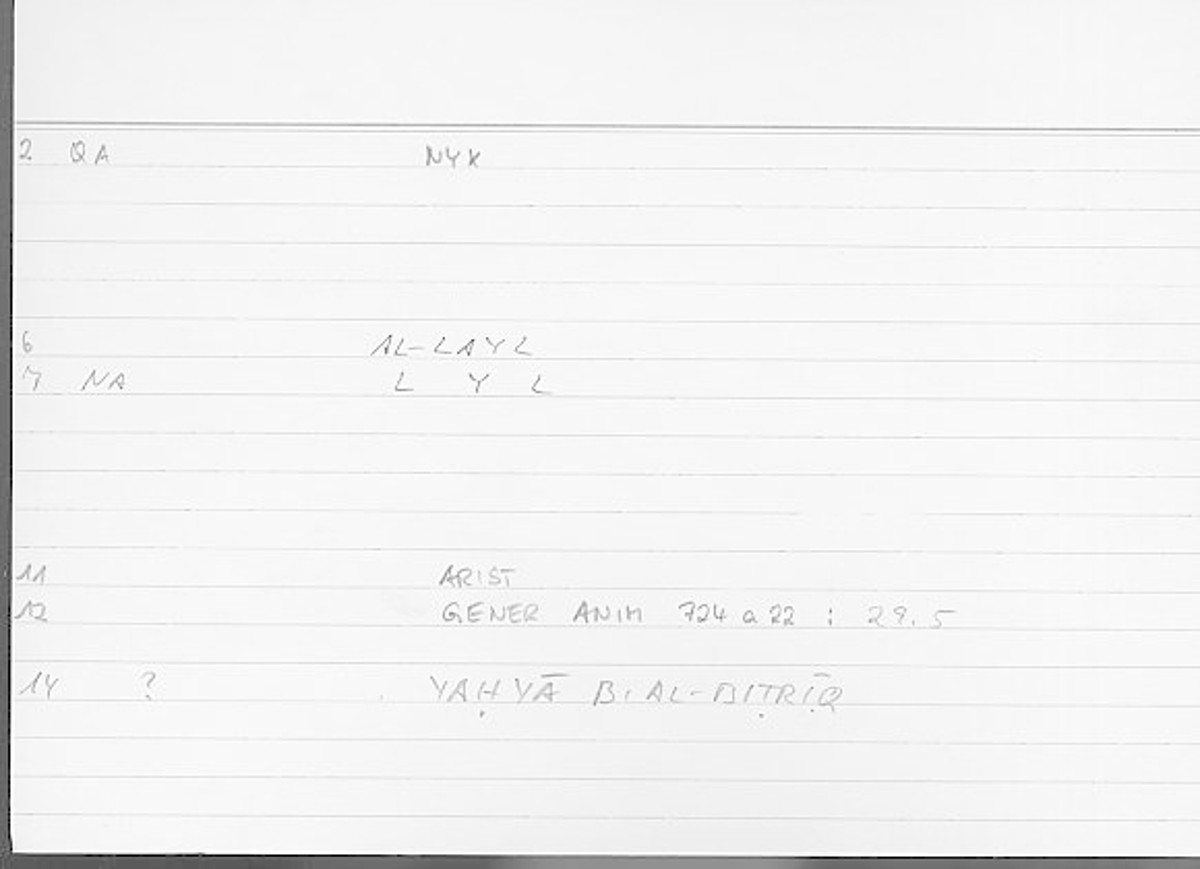 2 QA NYX
6 AL-LAYL
7 NA L Y L
11 ARIST
12 GENER ANIM 724 a 22 : 29.5
14 ? YAḤYĀ B. AL-BIṬRĪQ